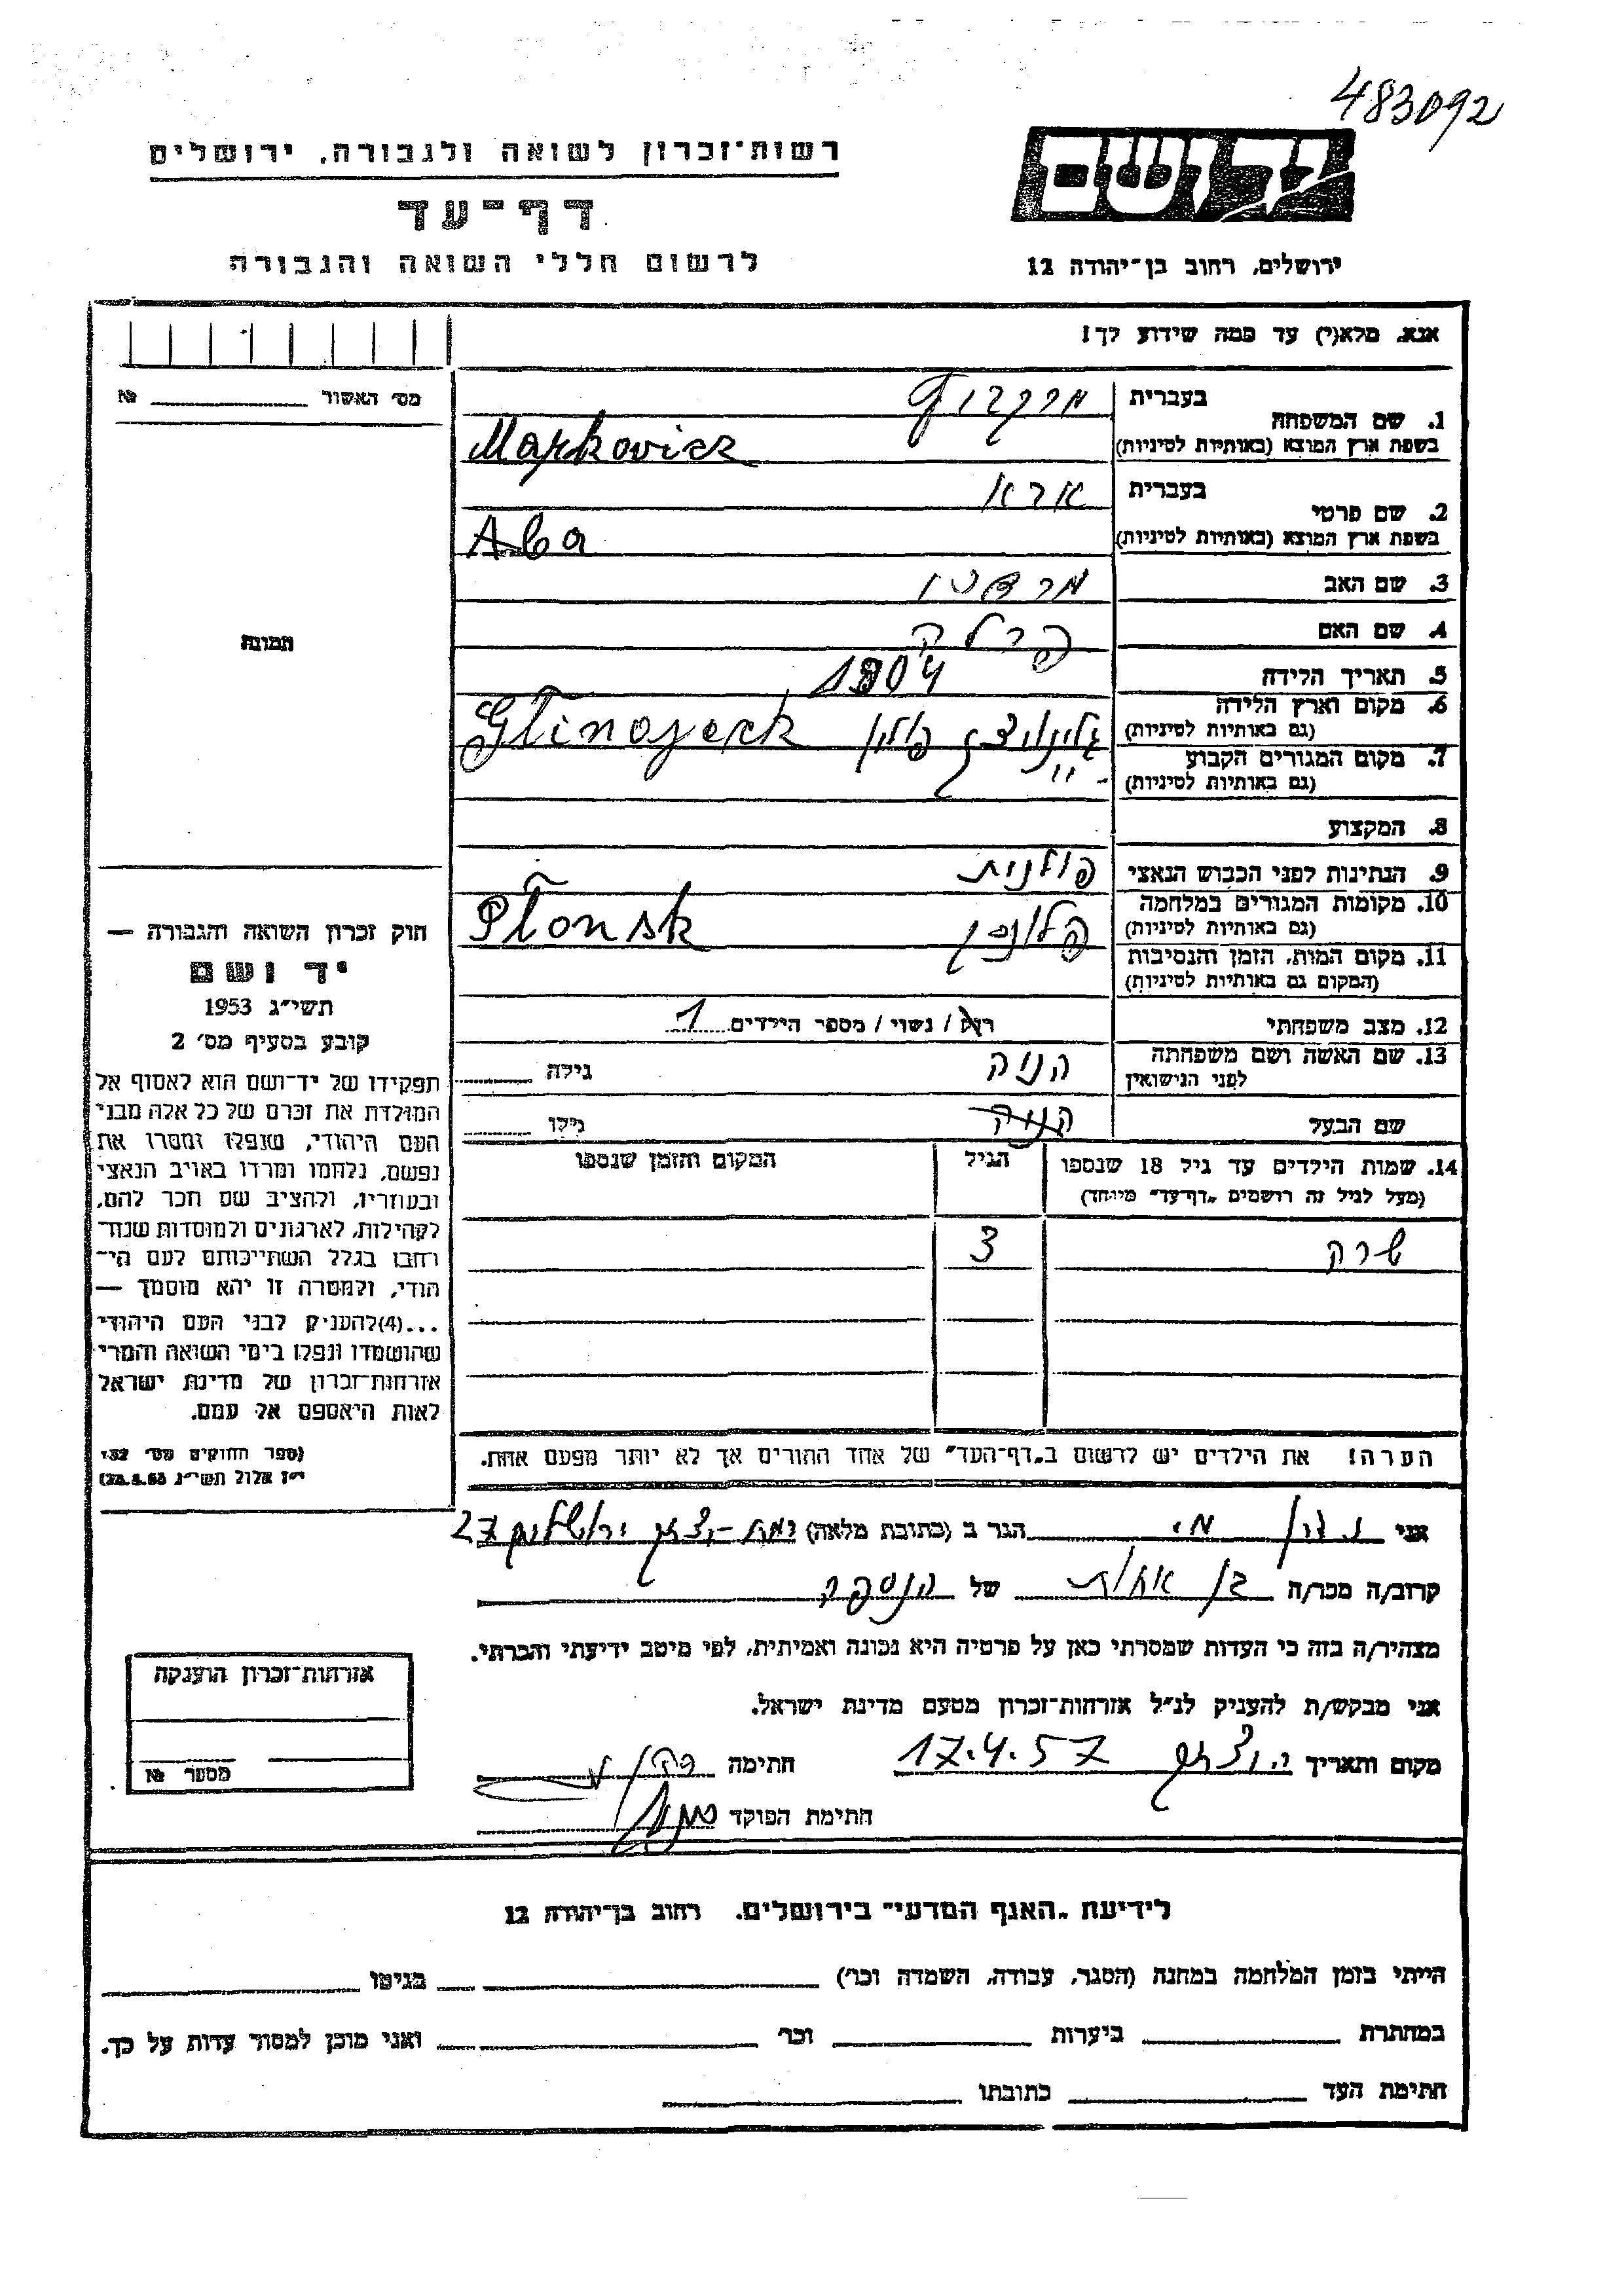 483092
יד ושם
רשות־זכרון לשואה ולגבורה, ירושלים
דף־עד
לרשום חללי השואה והגבורה
ירושלים, רחוב בן־יהודה 12
אנא, מלא(י) עד כמה שידוע לך!
מס׳ האשור № 
1. שם המשפחה בעברית
בשפת ארץ המוצא (באותיות לטיניות) Markovicz
2. שם פרטי בעברית אבא
בשפת ארץ המוצא (באותיות לטיניות) Aba
3. שם האב
4. שם האם פרלה
5. תאריך הלידה 1904
6. מקום וארץ הלידה
(גם באותיות לטיניות) פולין Glinojeck
7. מקום המגורים הקבוע
(גם באותיות לטיניות) - " -
8. המקצוע
9. הנתינות לפני הכבוש הנאצי פולנית
10. מקומות המגורים במלחמה
(גם באותיות לטיניות) פלונסק Płonsk
11. מקום המות, הזמן והנסיבות
(המקום גם באותיות לטיניות)
12. מצב משפחתי רווק / נשוי / מספר הילדים 1
13. שם האשה ושם משפחתה
לפני הנישואין
גילה
שם הבעל
גילו
14. שמות הילדים עד גיל 18 שנספו
(מעל לגיל זה רושמים „דף־עד״ מיוחד)
הגיל
המקום והזמן שנספו
שרה 3
הערה! את הילדים יש לרשום ב„דף־העד״ של אחד ההורים אך לא יותר מפעם אחת.
תמונה
חוק זכרון השואה והגבורה —
יד ושם
תשי״ג 1953
קובע בסעיף מס׳ 2
תפקידו של יד־ושם הוא לאסוף אל
המולדת את זכרם של כל אלה מבני
העם היהודי, שנפלו ומסרו את
נפשם, נלחמו ומרדו באויב הנאצי
ובעוזריו, ולהציב שם וזכר להם,
לקהילות, לארגונים ולמוסדות שנח־
רבו בגלל השתייכותם לעם הי־
הודי, ולמטרה זו יהא מוסמך —
...(4)להעניק לבני העם היהודי
שהושמדו ונפלו בימי השואה והמרי
אזרחות־זכרון של מדינת ישראל
לאות היאספם אל עמם.
(ספר החוקים מס׳ 132
י״ז אלול תשי״ג 28.8.53)
אני הגר ב (כתובת מלאה) 27
קרוב/ה מכר/ה בן אחות של הנספה
מצהיר/ה בזה כי העדות שמסרתי כאן על פרטיה היא נכונה ואמיתית, לפי מיטב ידיעתי והכרתי.
אני מבקש/ת להעניק לנ״ל אזרחות־זכרון מטעם מדינת ישראל.
מקום ותאריך 17.4.57 חתימה
חתימת הפוקד
אזרחות־זכרון הוענקה
מספר №
לידיעת „האגף המדעי״ בירושלים, רחוב בן־יהודה 12
הייתי בזמן המלחמה במחנה (הסגר, עבודה, השמדה וכו׳) בגיטו
במחתרת ביערות וכו׳ ואני מוכן למסור עדות על כך.
חתימת העד כתובתו